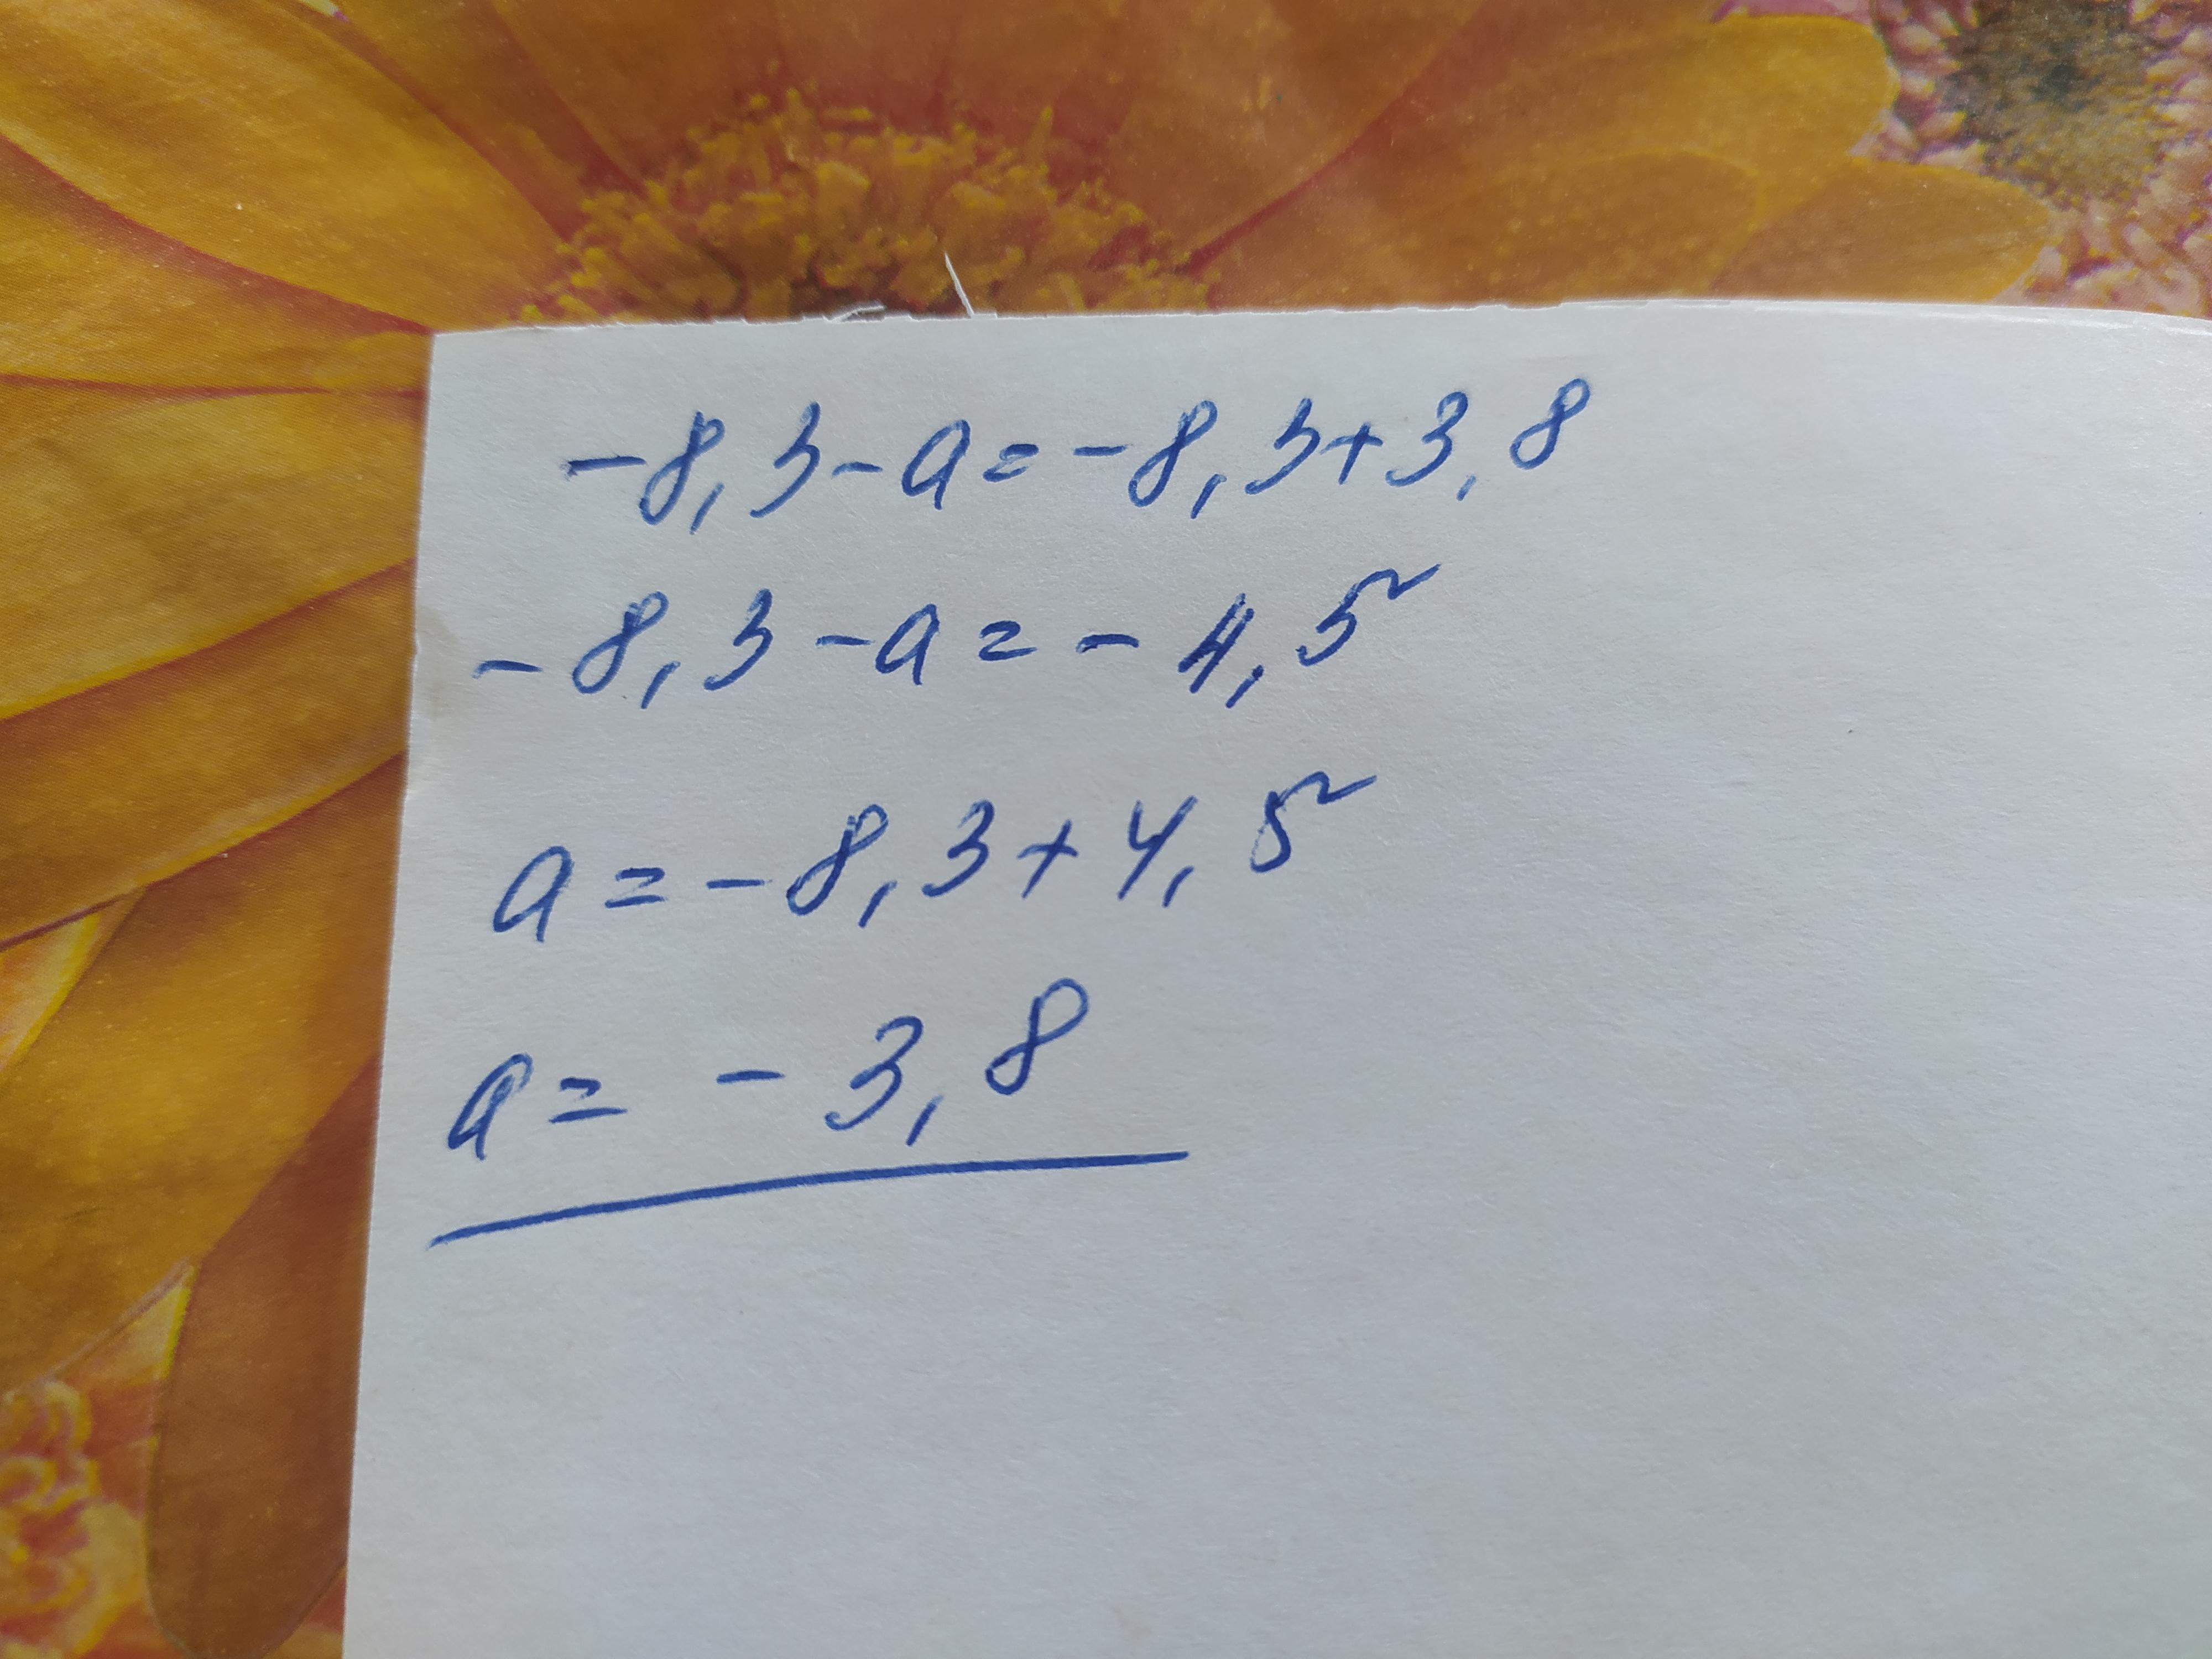 -8,3-a=-8,3+3,8
-8,3-a=-4,5
a=-8,3+4,5
a=-3,8